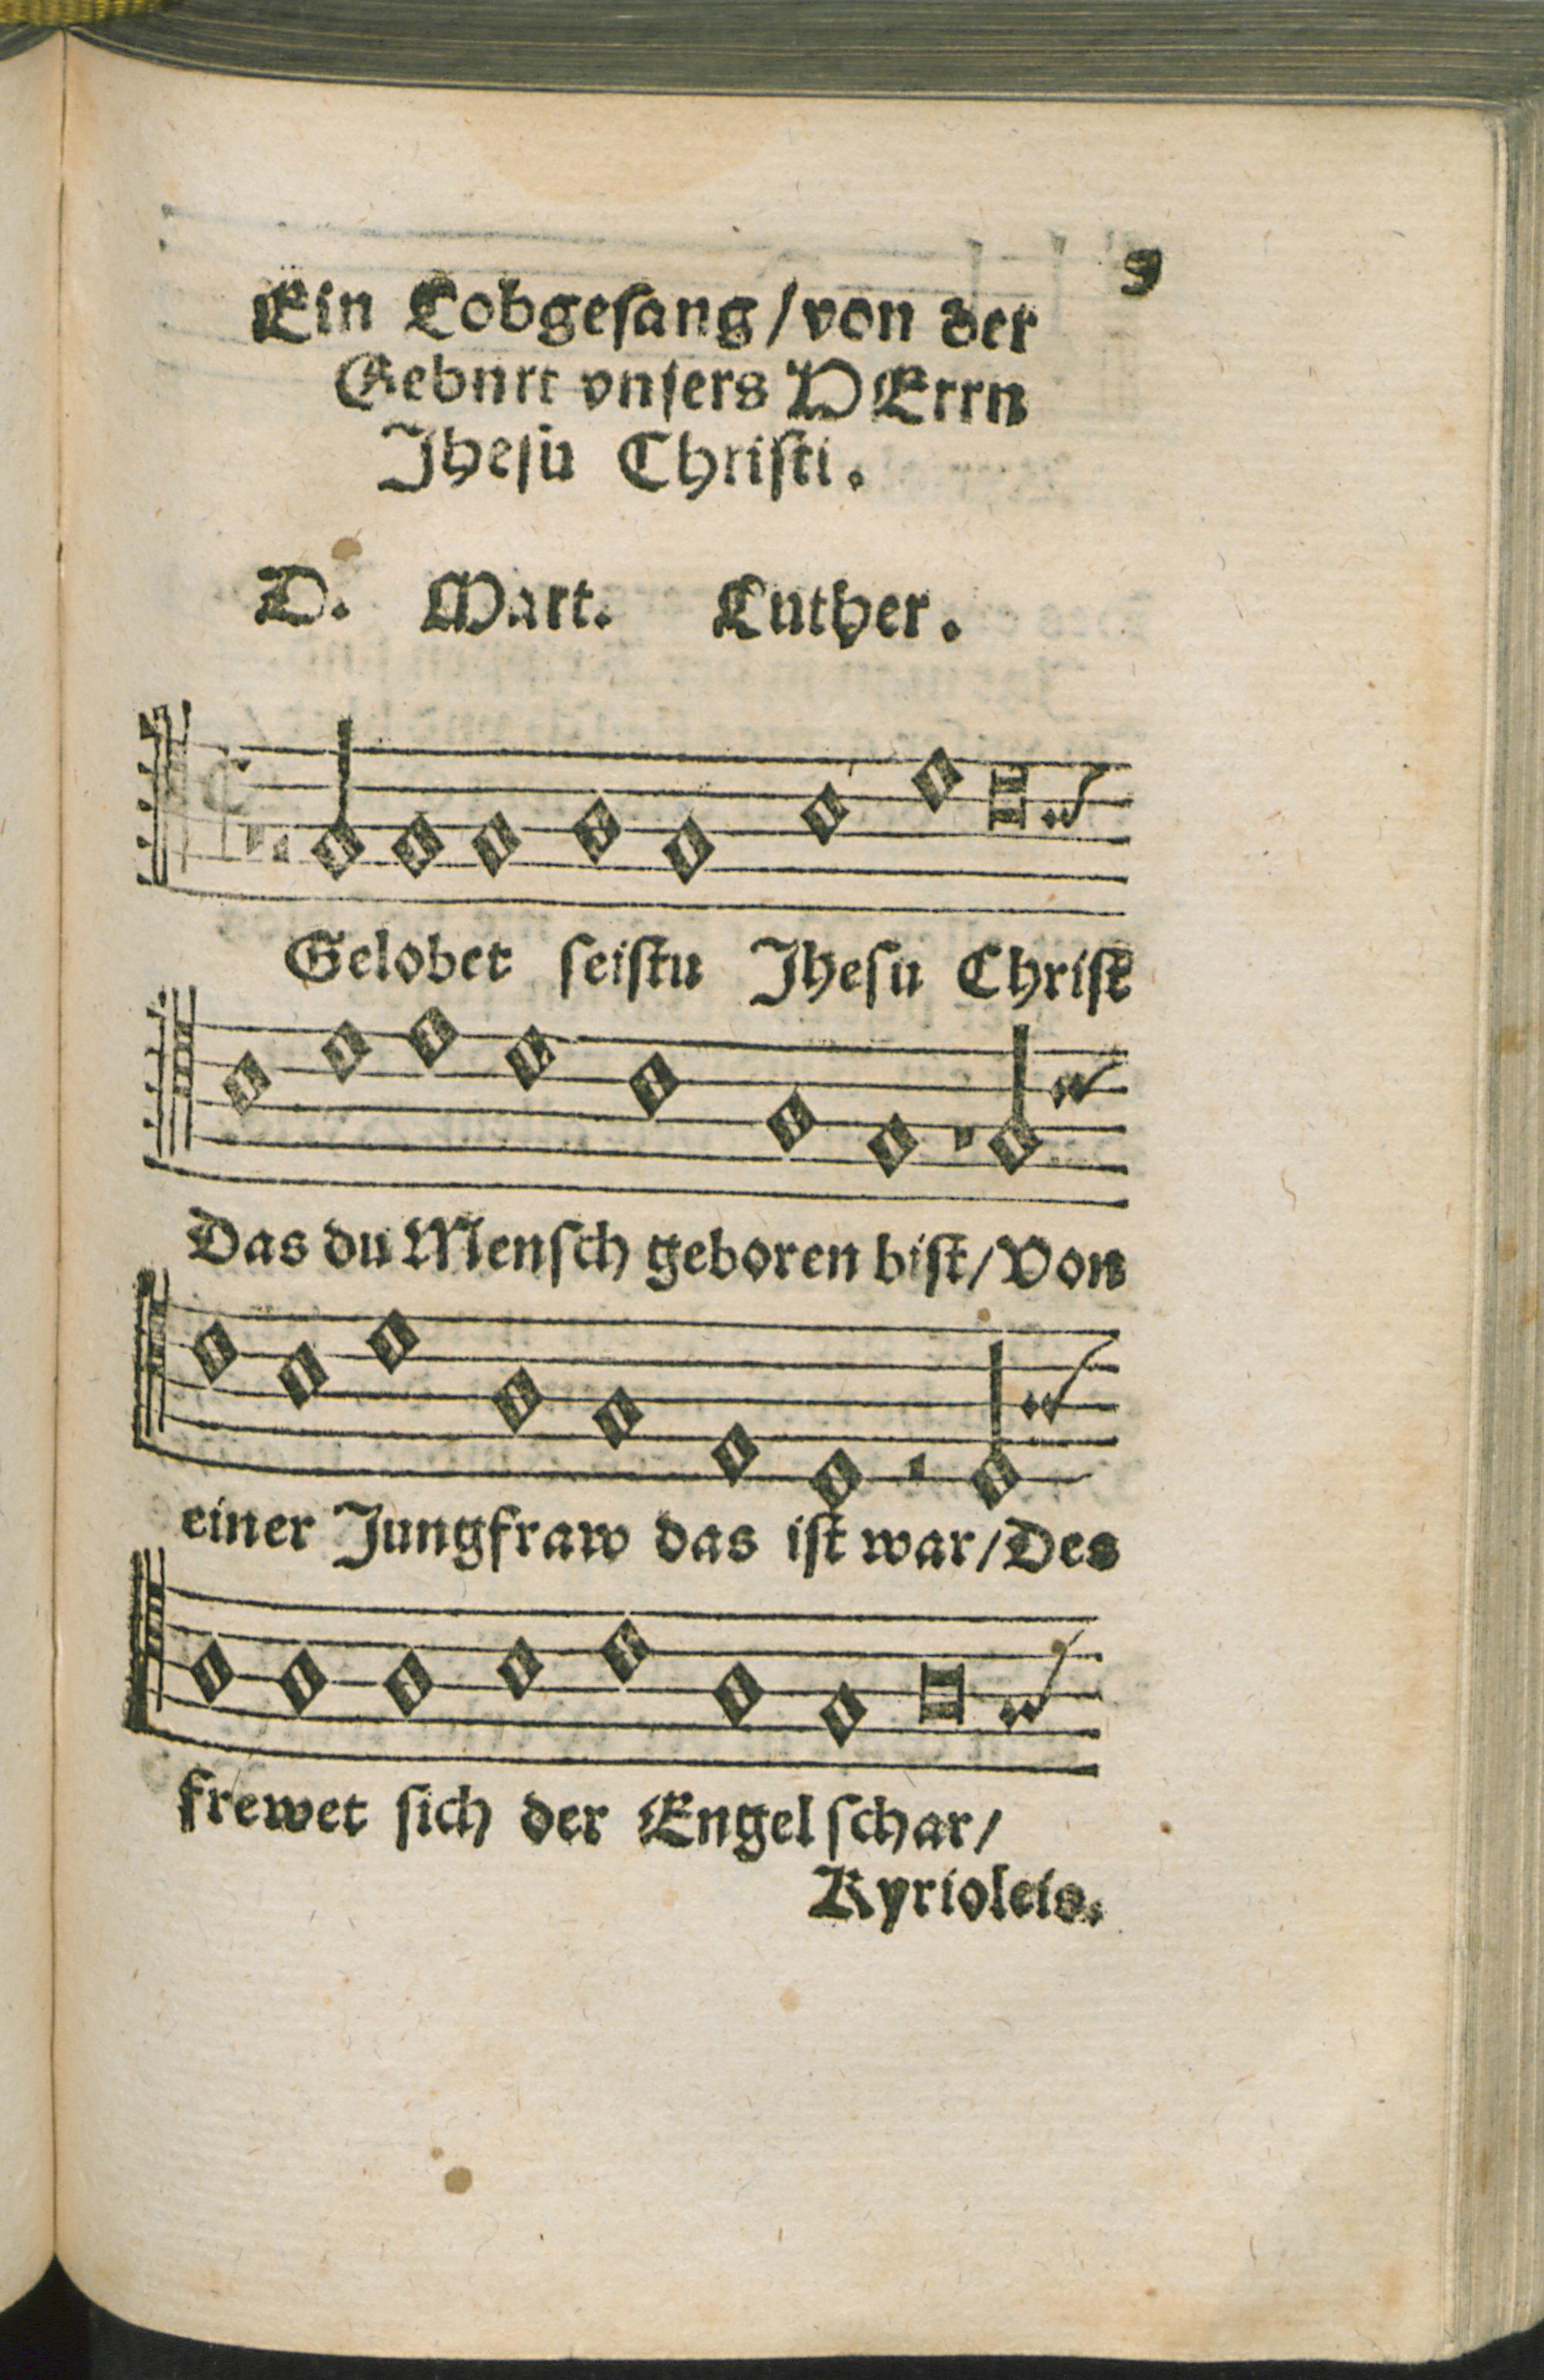 9
Ein Lobgesang/von der
Geburt vnsers HErrn
Jhesu Christi.
D. Mart. Luther.
Gelobet seistu Jhesu Christ
Das du Mensch geboren bist/Von
einer Jungfraw das ist war/Des
frewet sich der Engel schar/
Kyrioleis.